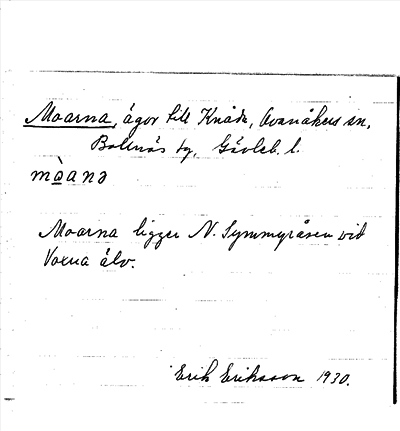 Moarna, ägor till Knåda, Ovanåkers sn,
Bollnäs tg, Gävleb. l.
mòanə
Moarna ligger N. Symmyråsen vid
Voxna älv.
Erik Eriksson 1930.